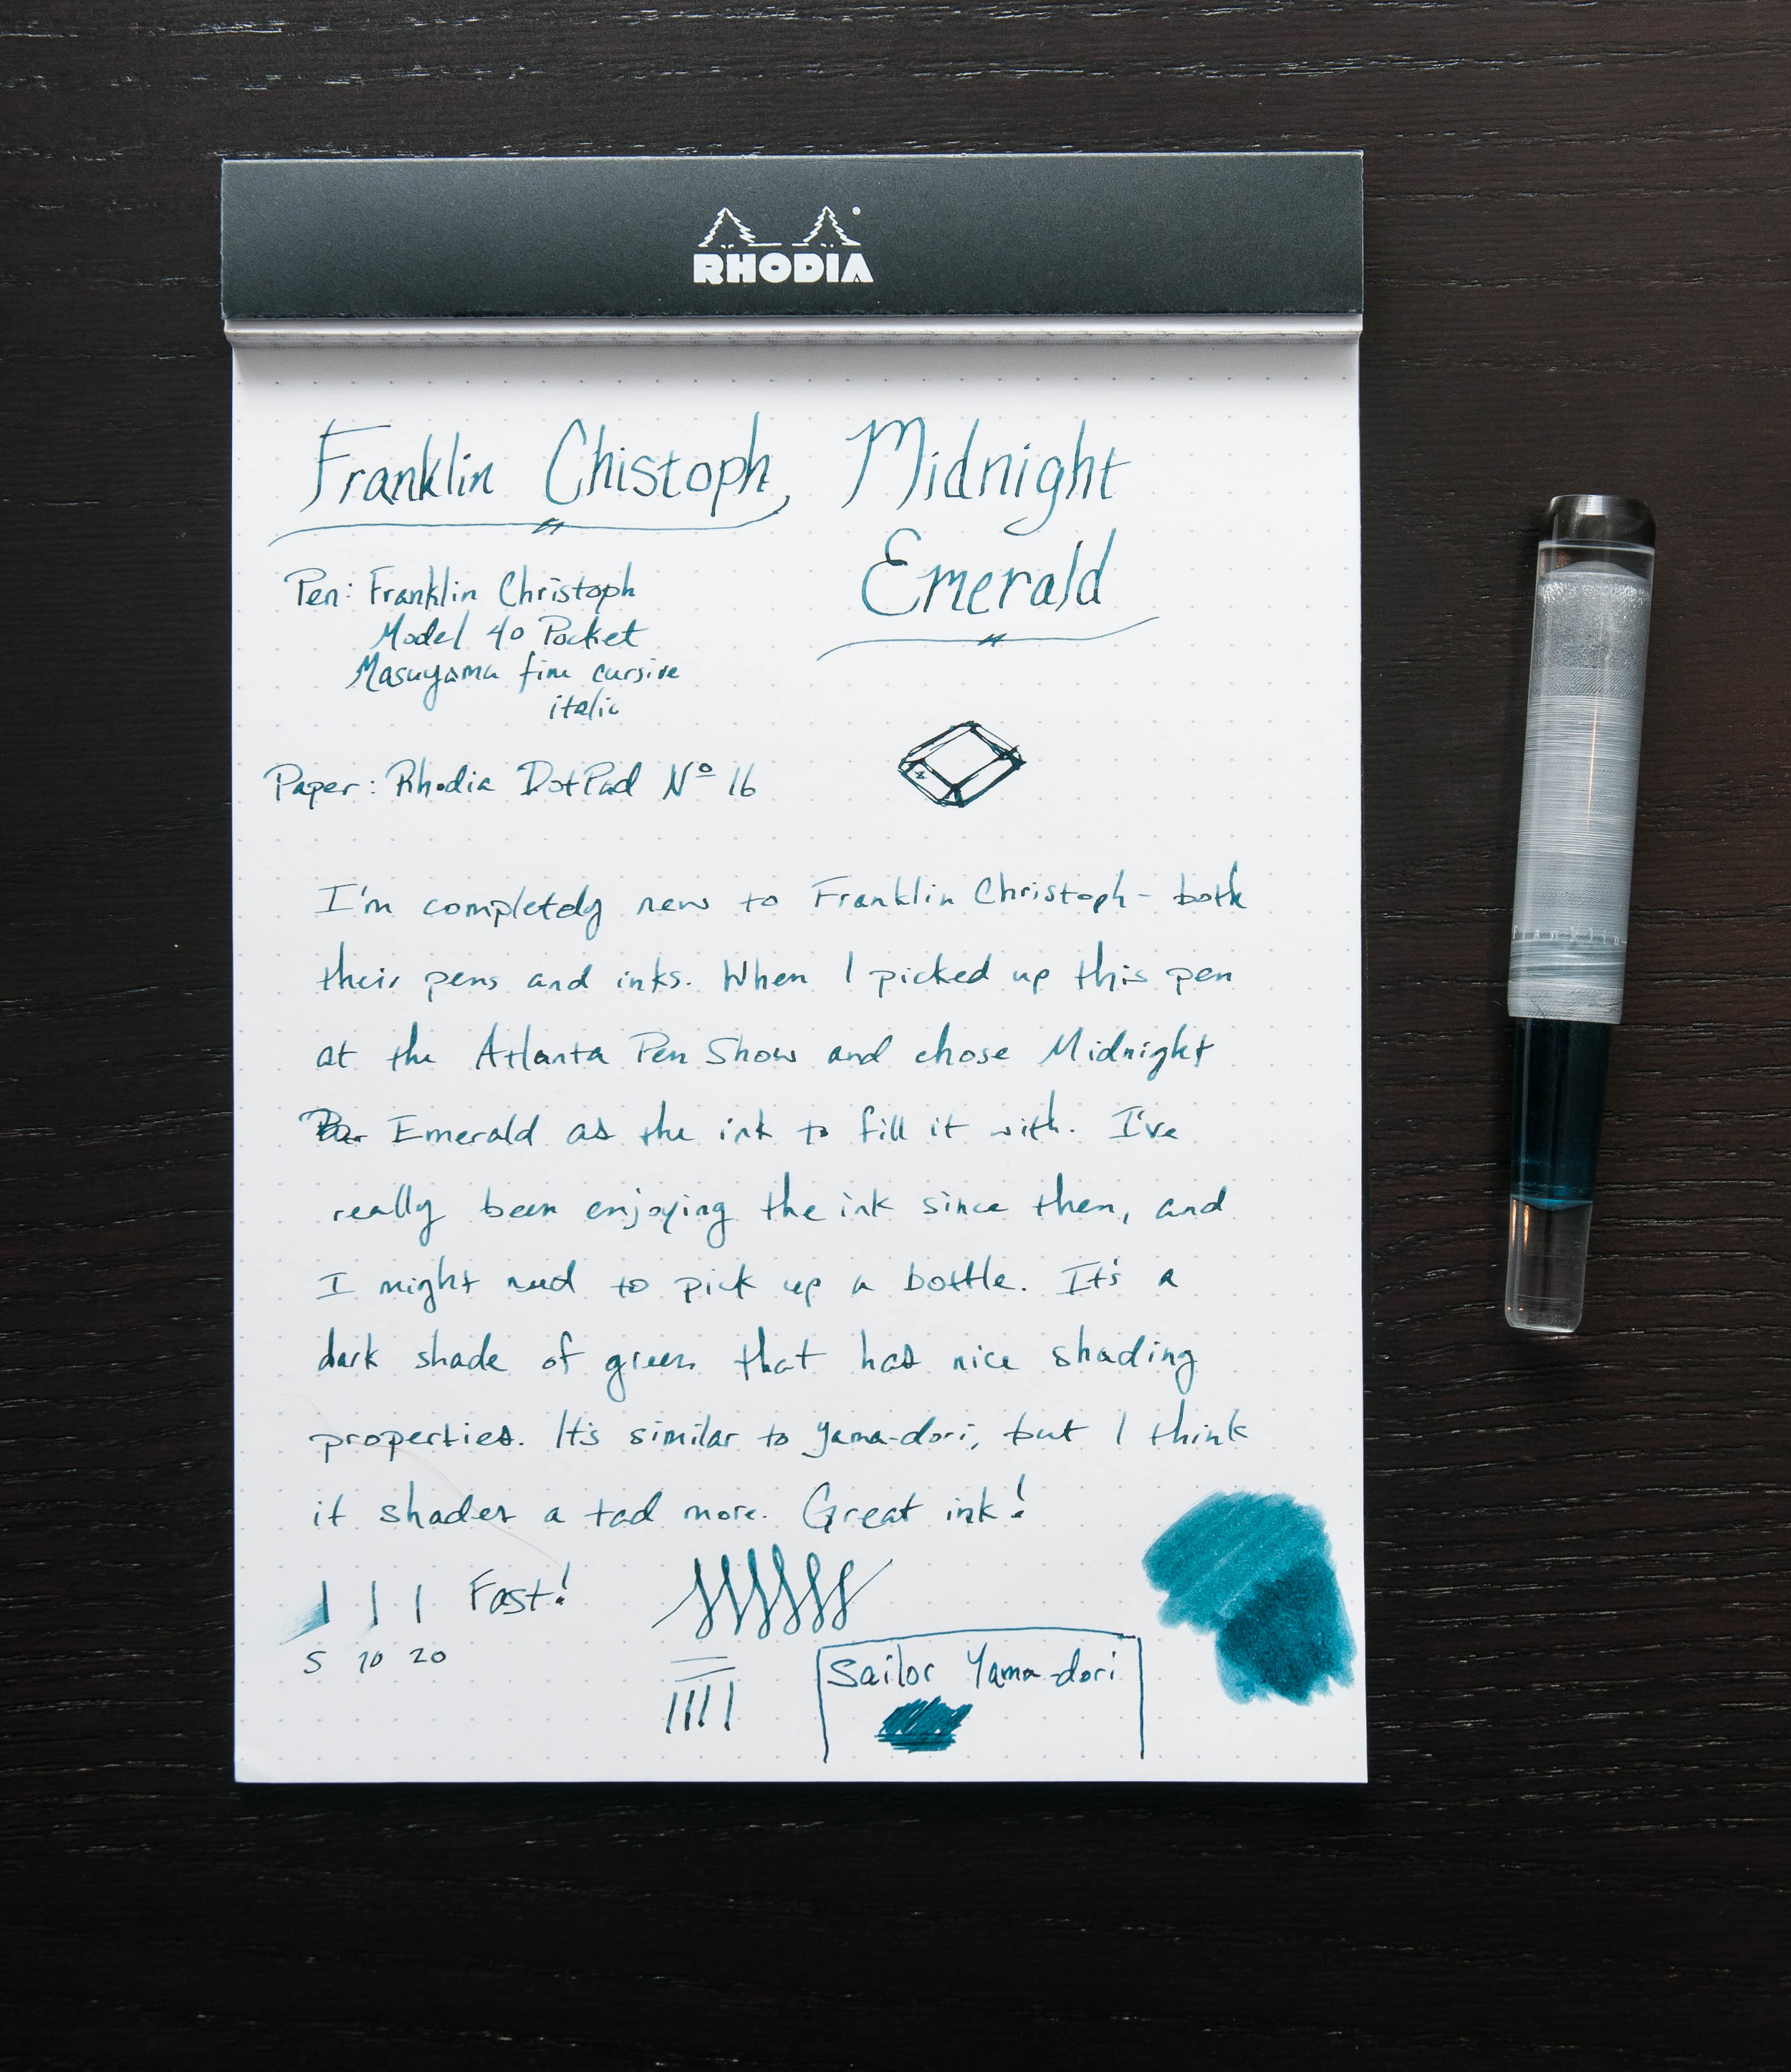 RHODIA
Franklin Chistoph, Midnight
Emerald
Pen: Franklin Christoph
Model 40 Pocket
Masuyama fine cursive
italic
Paper: Rhodia DotPad Nº 16
I'm completely new to Franklin Christoph - both
their pens and inks. When I picked up this pen
at the Atlanta Pen Show and chose Midnight
Emerald as the ink to fill it with. I've
really been enjoying the ink since then, and
I might need to pick up a bottle. It's a
dark shade of green that has nice shading
properties. It's similar to Yama-dori, but I think
it shades a tad more. Great ink!
Fast!
5 10 20
Sailor Yama-dori
Franklin-